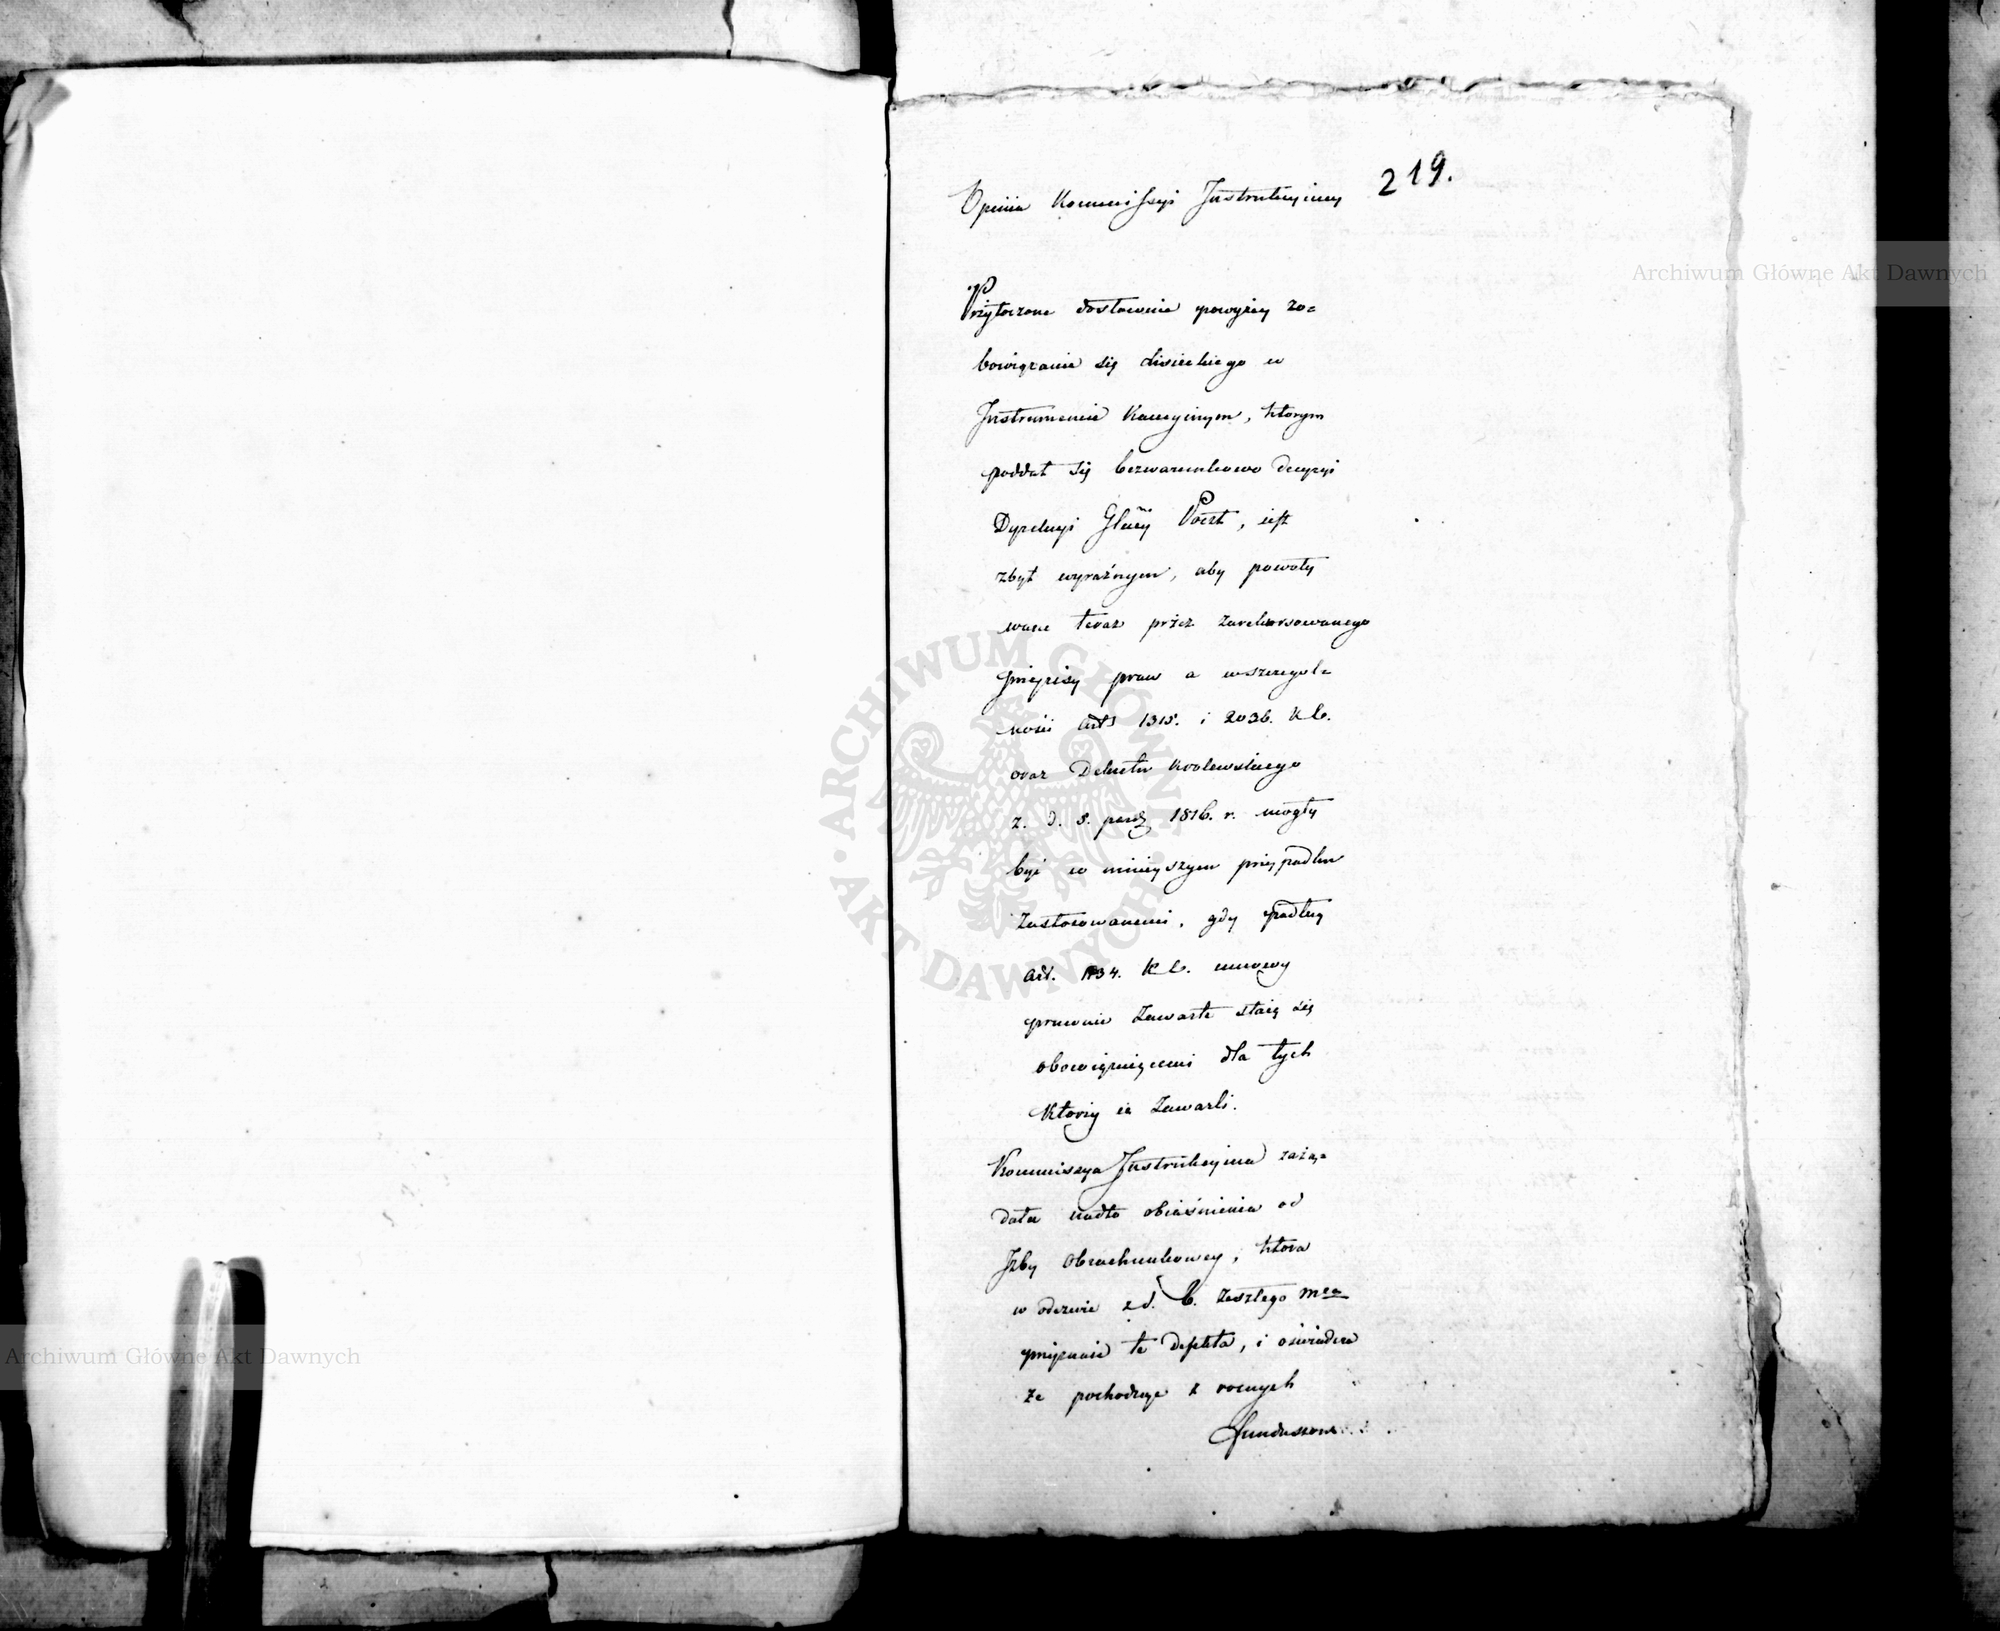 219.
Opinia Kommissyi Instrukcyiney
Przytoczone dosłownie powyżey zo=
bowiązanie się
Instrumencie Kaucyinym, którym
poddał się bezwarunkowo decyzyi
Dyrekcyi Głney Poczt, iest
zbyt wyraźnym, aby powoły
wane teraz przez zarekursowanego
przepisy praw a wszczegól=
ności art 1315. i 2036. K C.
oraz Dekretu Krolewskiego
z. d. 8. paźdz 1816. r. mogły
być w ninieyszym przypadku
Zastosowanemi, gdy podług
art. 1134. K C. umowy
prawnie Zawarte staią się
obowięzuiącemi dla tych
Którzy ie Zawarli.
Kommissya Instrukcyina zażą=
dała nadto obiaśnienia od
Izby Obrachunkowey, która
w odezwie z d. 6. Zeszłego mca
przyznaie te defekta, i oświadcza
że pochodzą z rocznych
funduszow
Archiwum Główne Akt Dawnych
Archiwum Główne Akt Dawnych
ARCHIWUM GŁÓWNE AKT DAWNYCH